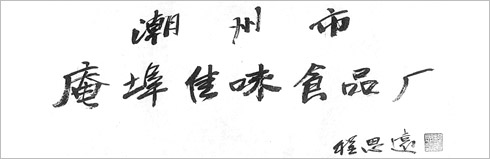 潮州市
庵埠佳味食品厂
程思远